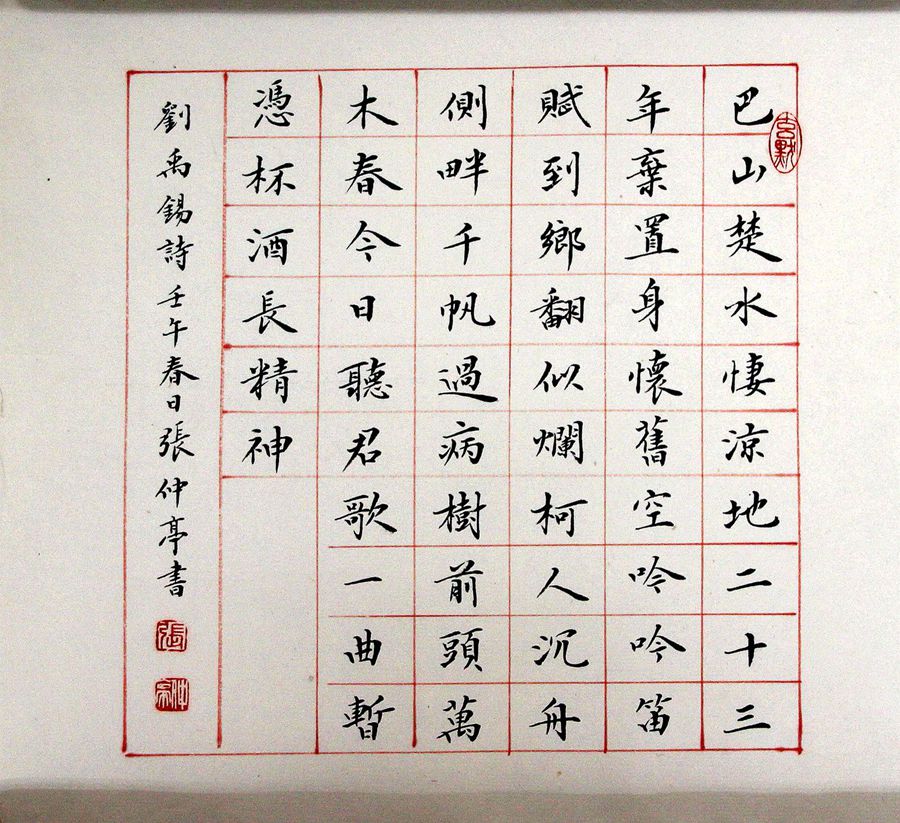 巴山楚水悽涼地二十三
年棄置身懷舊空吟吟笛
賦到鄉翻似爛柯人沉舟
側畔千帆過病樹前頭萬
木春今日聽君歌一曲暫
憑杯酒長精神
劉禹錫詩壬午春日張仲亭書
張